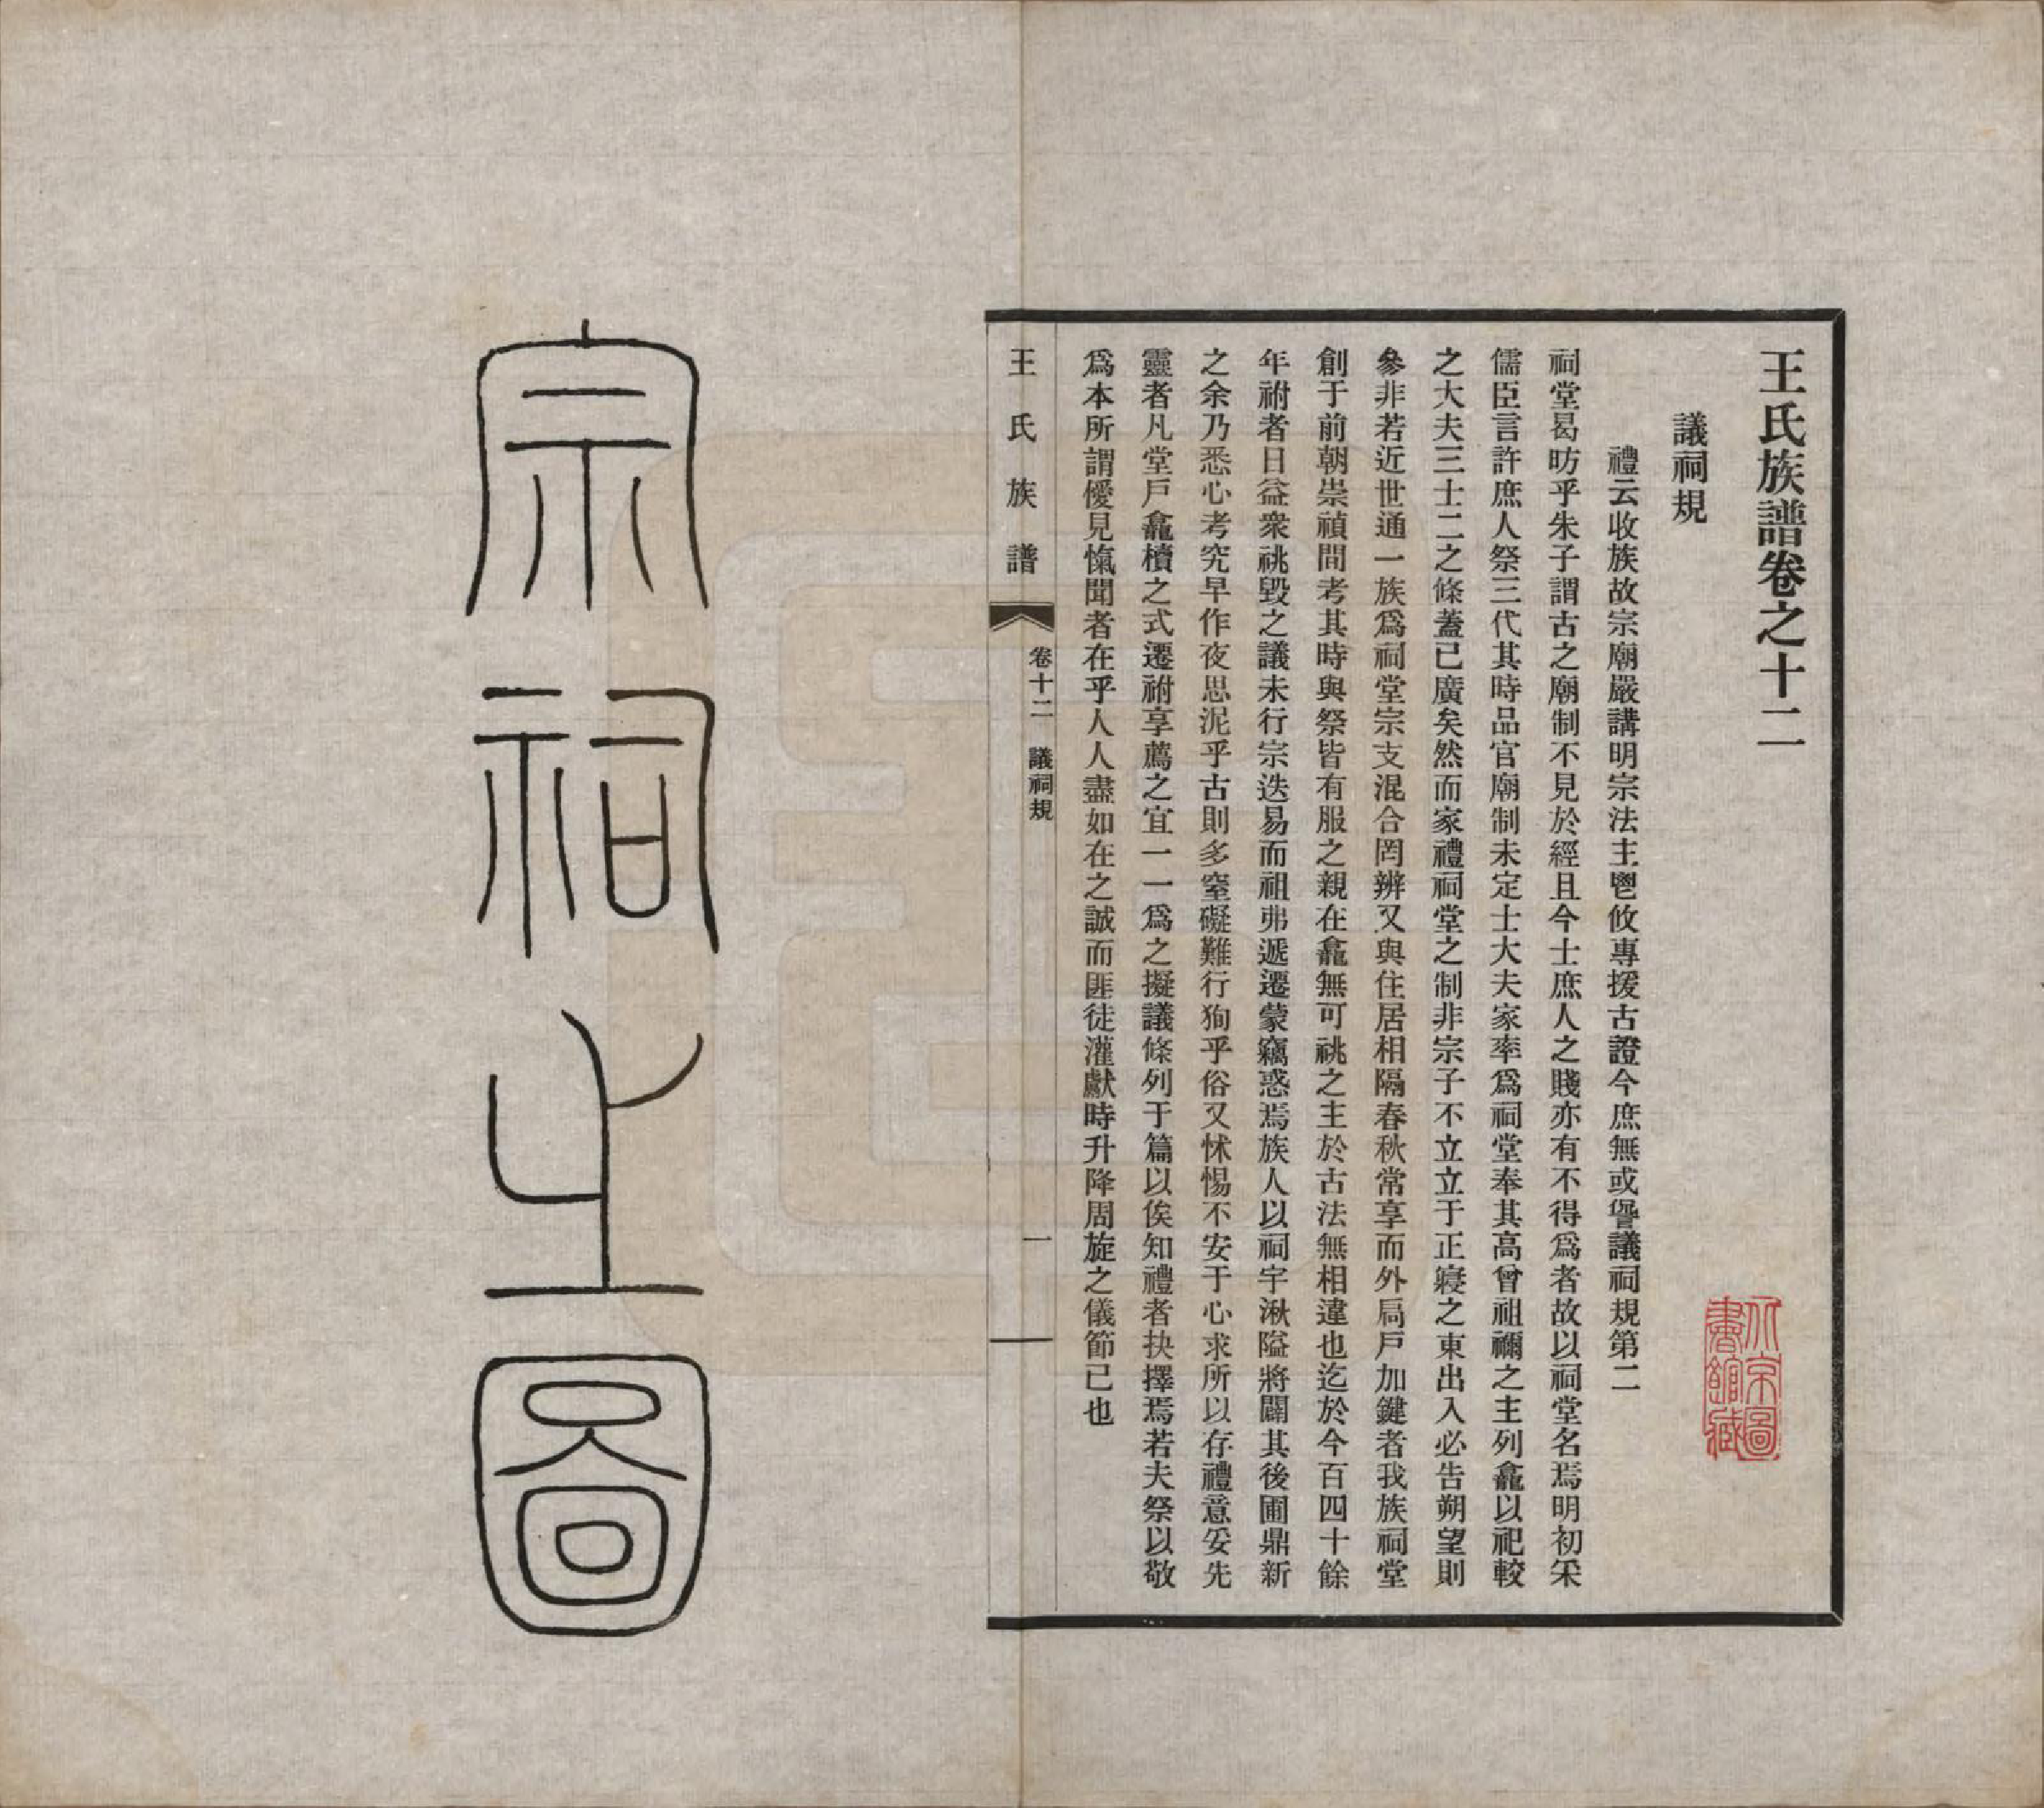 王氏族譜卷之十二
議祠規
禮云收族故宗廟嚴講明宗法主鬯攸專援古證今庶無或諐議祠規第二
祠堂曷昉乎朱子謂古之廟制不見於經且今士庶人之賤亦有不得爲者故以祠堂名焉明初采
儒臣言許庶人祭三代其時品官廟制未定士大夫家率爲祠堂奉其高曾祖禰之主列龕以祀較
之大夫三士二之條蓋已廣矣然而家禮祠堂之制非宗子不立立于正寢之東出入必告朔望則
參非若近世通一族爲祠堂宗支混合罔辨又與住居相隔春秋常享而外扃戶加鍵者我族祠堂
創于前朝崇禎間考其時與祭皆有服之親在龕無可祧之主於古法無相違也迄於今百四十餘
年祔者日益衆祧毀之議未行宗迭易而祖弗遞遷蒙竊惑焉族人以祠宇湫隘將闢其後圃鼎新
之余乃悉心考究早作夜思泥乎古則多窒礙難行狥乎俗又怵惕不安于心求所以存禮意妥先
靈者凡堂戶龕櫝之式遷祔享薦之宜一一爲之擬議條列于篇以俟知禮者抉擇焉若夫祭以敬
爲本所謂僾見愾聞者在乎人人盡如在之誠而匪徒灌獻時升降周旋之儀節已也
王氏族譜
卷十二 議祠規
一
北京圖書館藏
宗祠之圖